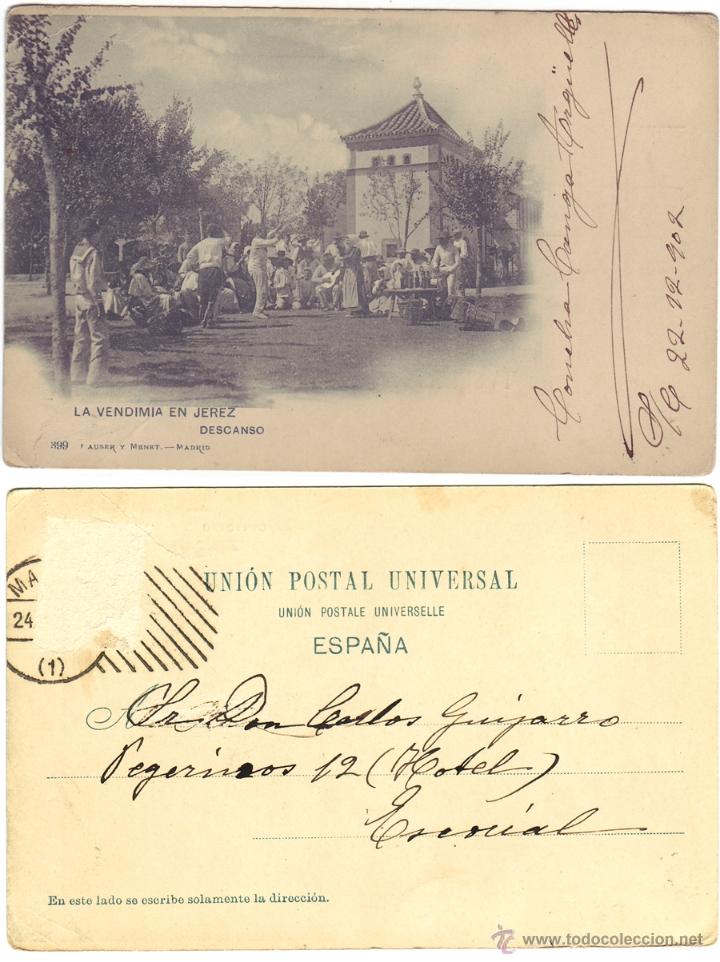 LA VENDIMIA EN JEREZ
DESCANSO
399 HAUSER Y MENET.—MADRID
Concha Canga Argüelles
S/C 22-12-902
MA
24
(1)
UNIÓN POSTAL UNIVERSAL
UNION POSTALE UNIVERSELLE
ESPAÑA
A Sr. Don Carlos Guijarro
Pegerinos 12 (Hotel)
Escorial
En este lado se escribe solamente la dirección.
www.todocoleccion.net